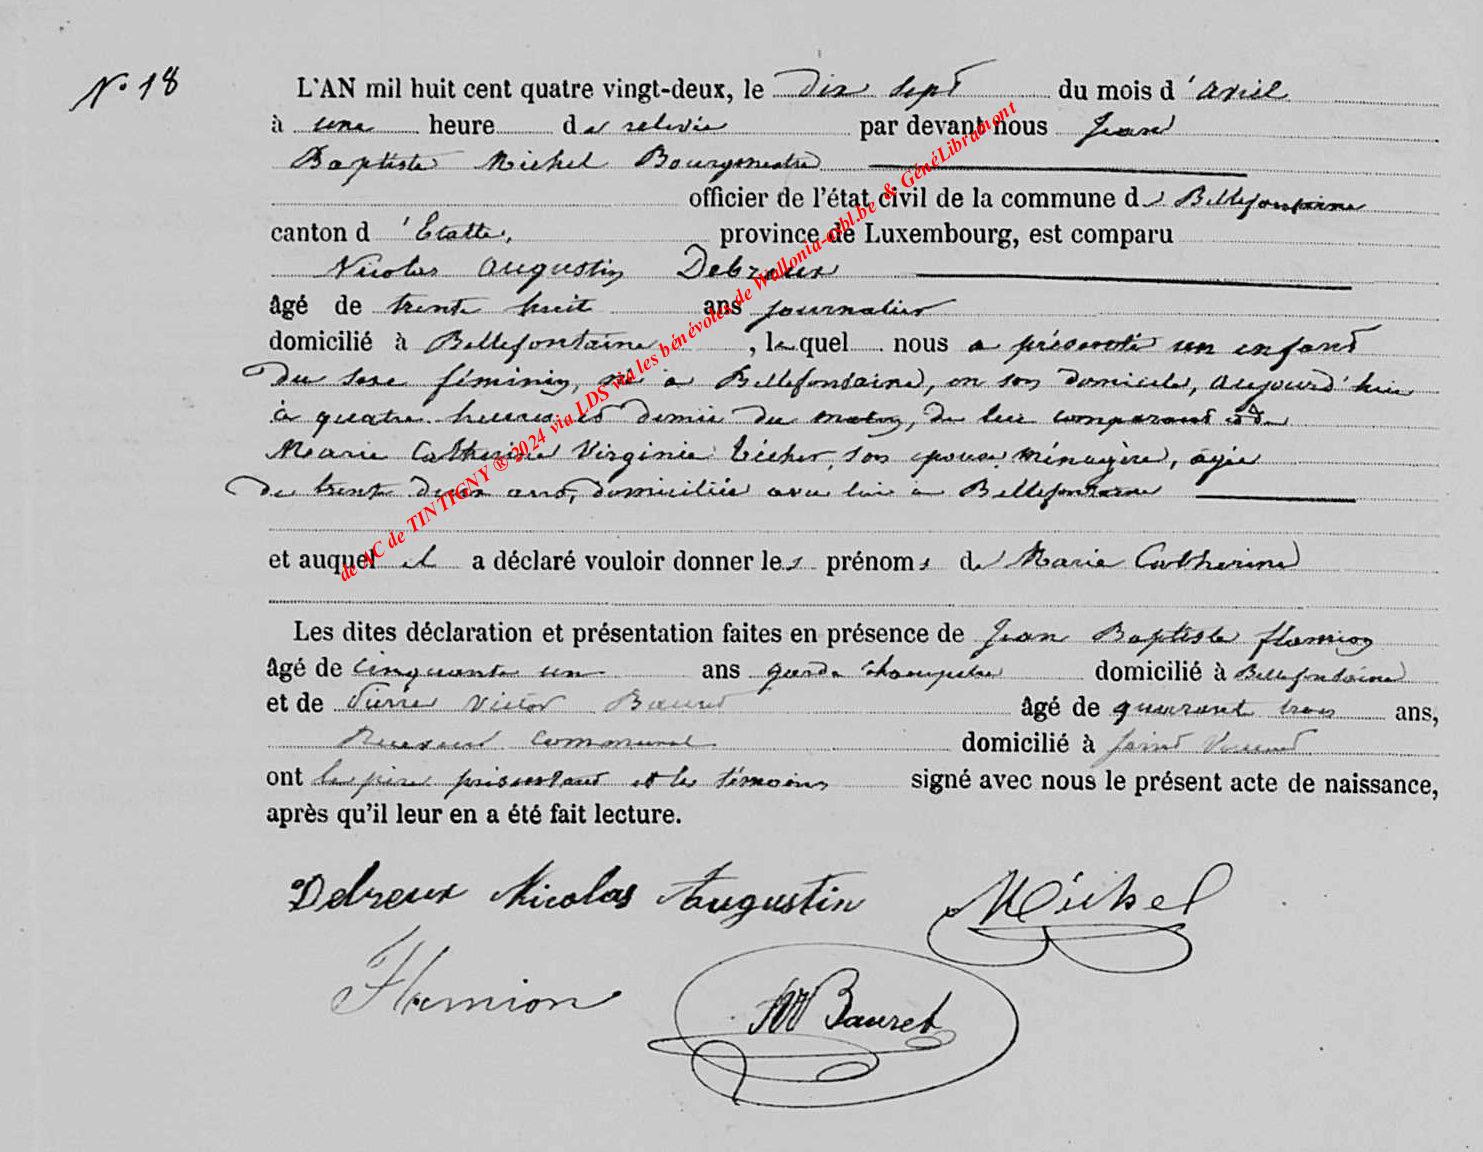 N° 18
L'AN mil huit cent quatre vingt-deux, le dix sept du mois d'avril
à une heure de relevée par devant nous Jean
Baptiste Michel Bourgmestre
officier de l'état civil de la commune de Bellefontaine
canton d'Etalle, province de Luxembourg, est comparu
Nicolas Augustin Debreux
âgé de trente huit ans journalier
domicilié à Bellefontaine, lequel nous a présenté un enfant
du sexe féminin, né à Bellefontaine, en son domicile, aujourd'hui
à quatre heures et demie du matin, de lui comparant et de
Marie Catherine Virginie son épouse, ménagère, âgée
de trente deux ans, domiciliée avec lui à Bellefontaine
et auquel il a déclaré vouloir donner les prénoms de Marie Catherine
Les dites déclaration et présentation faites en présence de Jean Baptiste Hamion
âgé de cinquante un ans garde champêtre domicilié à Bellefontaine
et de Pierre Victor Bauret âgé de quarante trois ans,
Receveur communal domicilié à Saint Vincent
ont le père présentant et les témoins signé avec nous le présent acte de naissance,
après qu'il leur en a été fait lecture.
Debreux Nicolas Augustin Michel
Hamion Bauret
de AC de TINTIGNY ® 2024 via LDS via les bénévoles de Wallonia-asbl.be & GénéLibramont